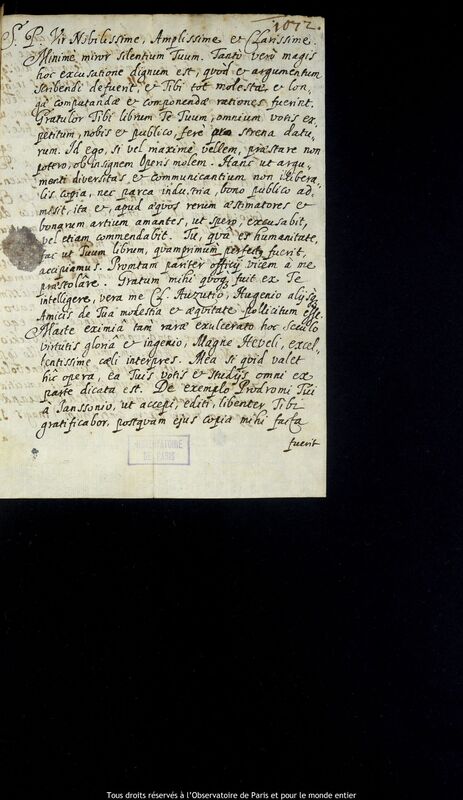 1072.
S. P. Vir Nobilissime, Amplissime et Clarissime.
Minime miror silentium Tuum. Tantò verò magis
hoc excusatione dignum est, quod et argumentum
scribendi defuerit, et Tibi tot molestæ, et lon-
gæ computandæ et componendæ rationes fuerint.
Gratulor Tibi librum Te Tuum, omnium votis ex
petitum, nobis et publico, ferè strena datu,,
rum. Id ego, si vel maximè vellem, præstare non
potero, ob insignem Operis molem. Hanc ut argu,,
menti diversitas et communicantium non illibera,,
lis copia, nec parca industria, bono publico ad
misit, ita et, apud æquos rerum æstimatores et
bonarum artium amantes, ut spero, excusabit,
vel etiam commendabit. Tu, quâ es humanitate,
fac ut Tuum librum, quamprimum perfectus fuerit,
accipiamus. Promtam pariter officij vicem à me
præstolare. Gratum mihi quoque fuit ex Te
intelligere, vera me Cl. Auzutio, Hugenio alijsq
Amicis de Tuâ modestia et æquitate pollicitum esse.
Macte eximiâ tam raræ exulcerato hoc seculo
virtutis gloriâ et ingenio, Magne Heveli, excel,,
lentissime cæli interpres. Mea si quid valet
hic opera, ea Tuis votis et studijs omni ex
parte dicata est. De exemplo Prodromi Tui
à Janssonio, ut accepi, editi, libenter Tibi
gratificabor, postquam ejus copia mihi facta
fuerit
OBSERVATOIRE
DE PARIS
Tous droits réservés à l'Observatoire de Paris et pour le monde entier